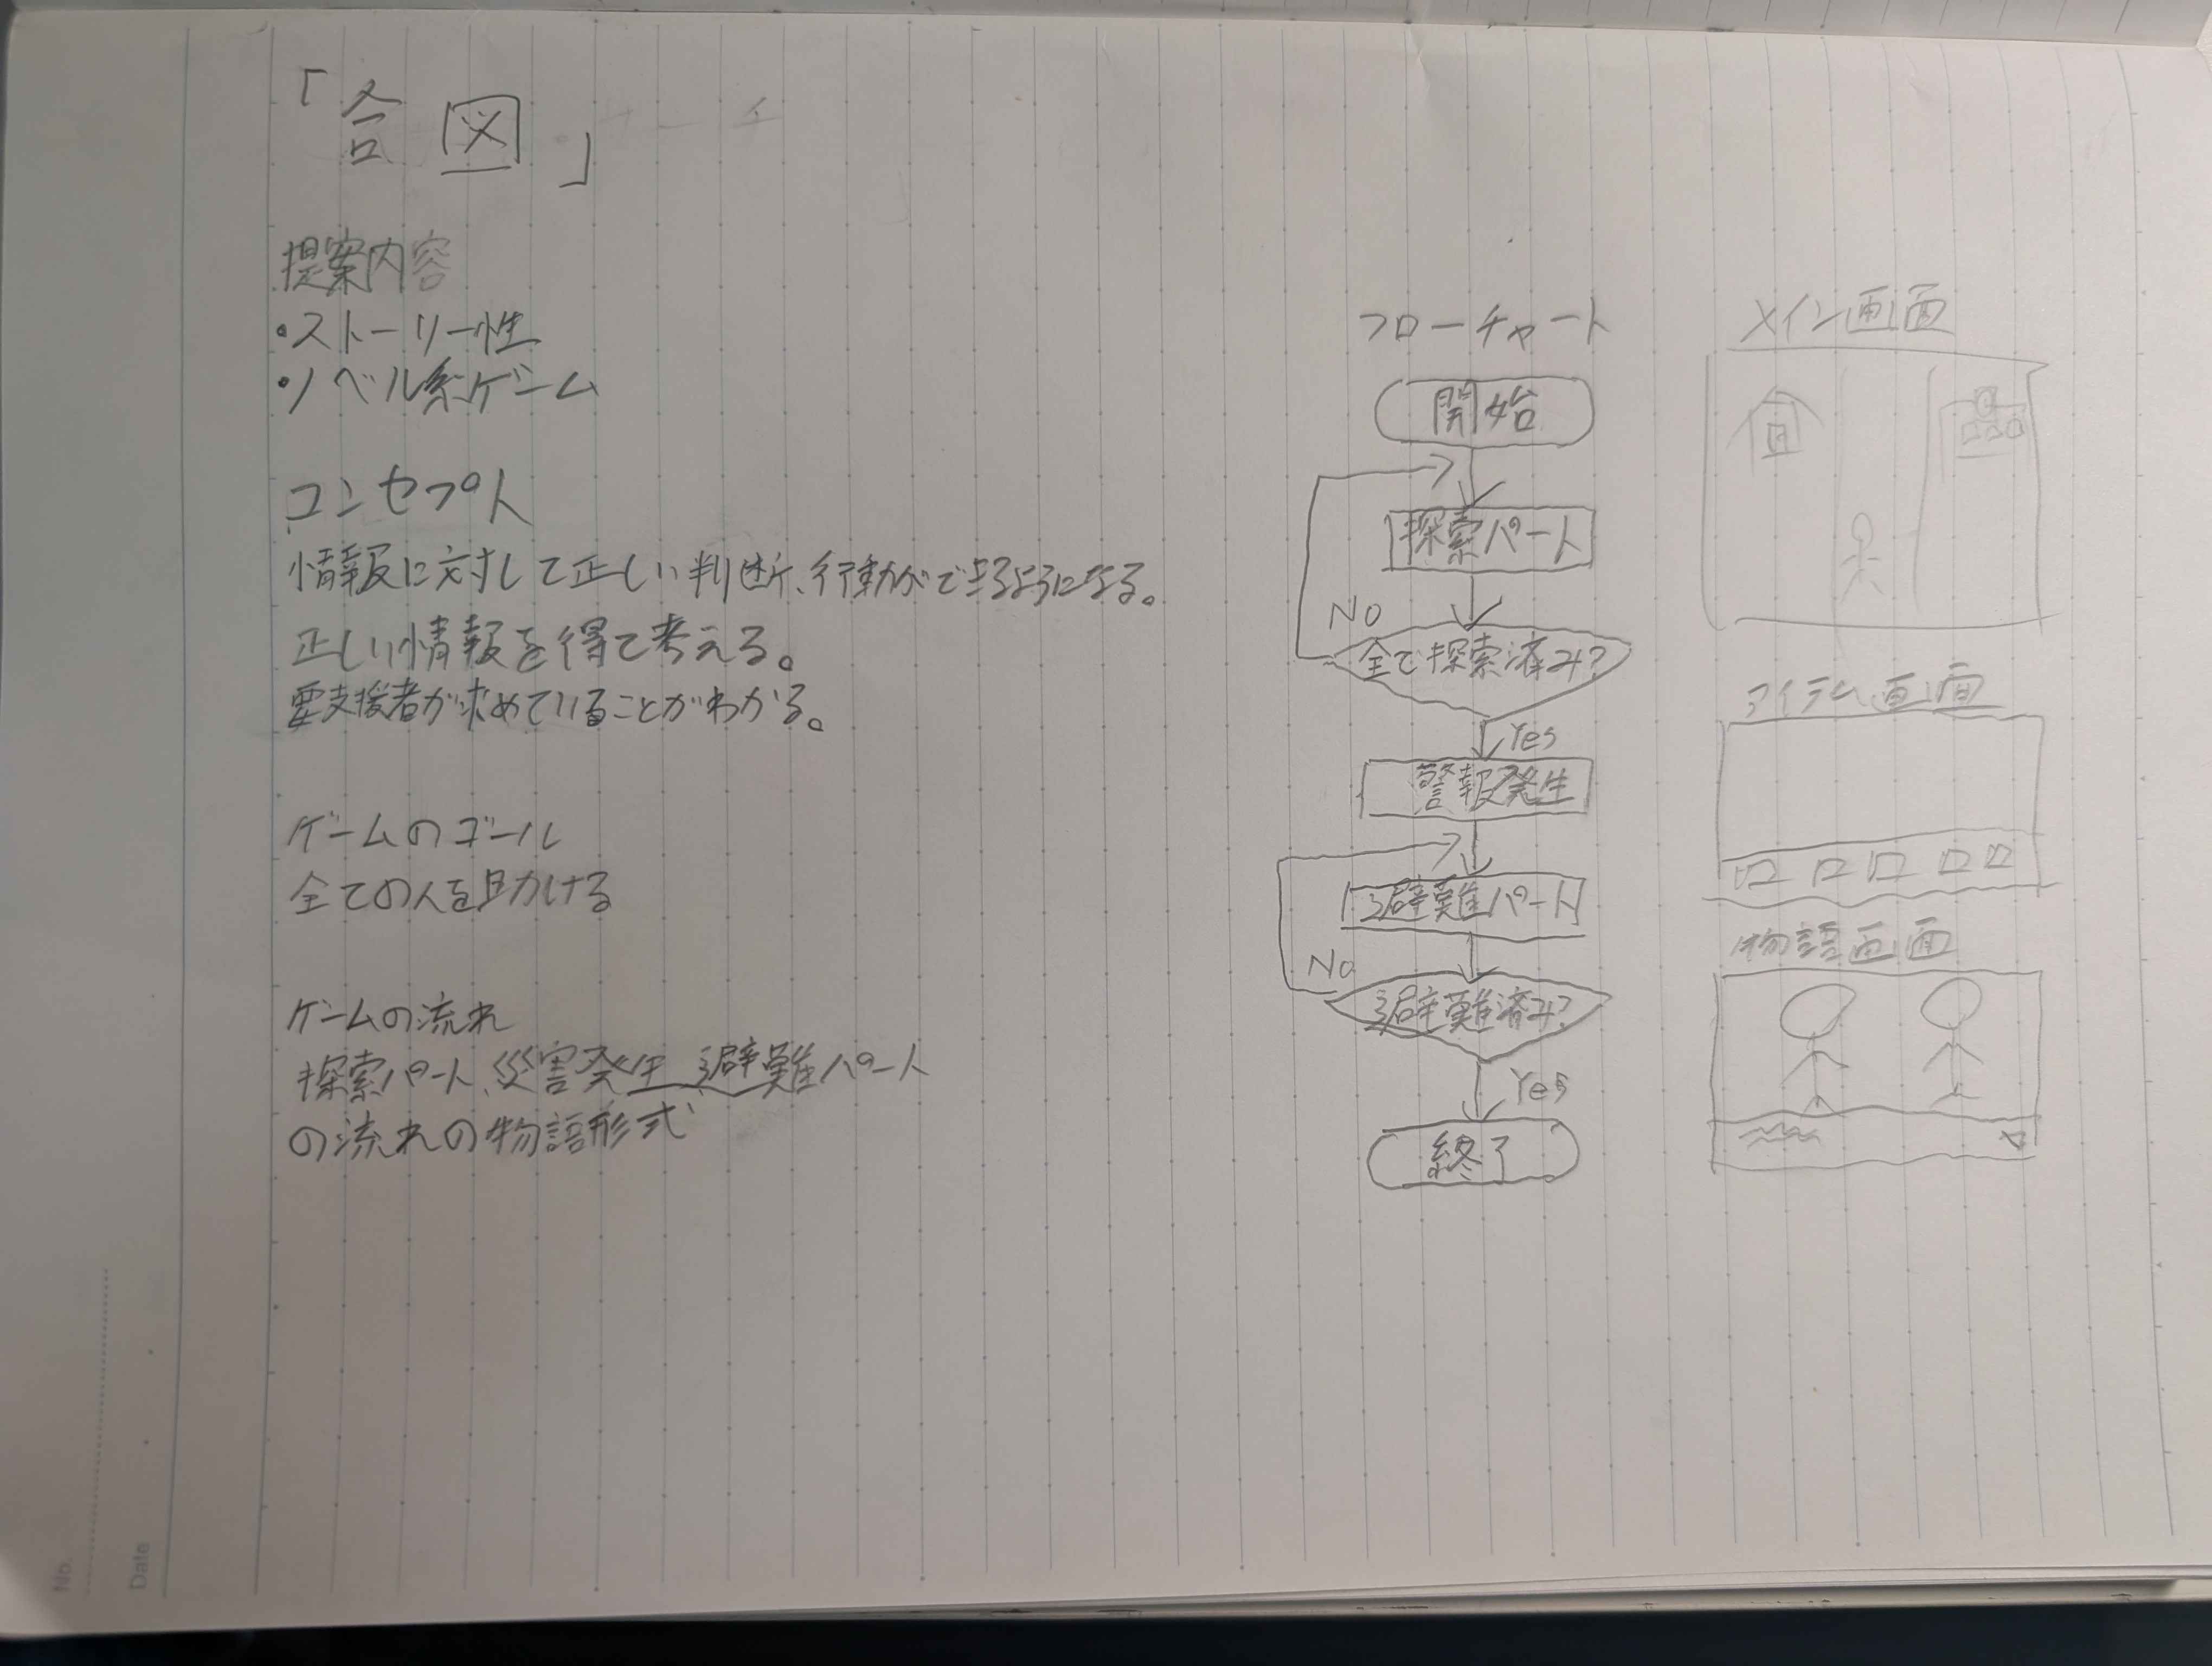 「合図」
提案内容
・ストーリー性
・ノベル系ゲーム
コンセプト
情報に対して正しい判断、行動ができるようになる。
正しい情報を得て考える。
要支援者が求めていることがわかる。
ゲームのゴール
全ての人を助ける
ゲームの流れ
探索パート、災害発生、避難パート
の流れの物語形式
フローチャート
開始
探索パート
No
全て探索済み?
Yes
警報発生
避難パート
No
避難済み?
Yes
終了
メイン画面
アイテム画面
物語画面
No.
Date